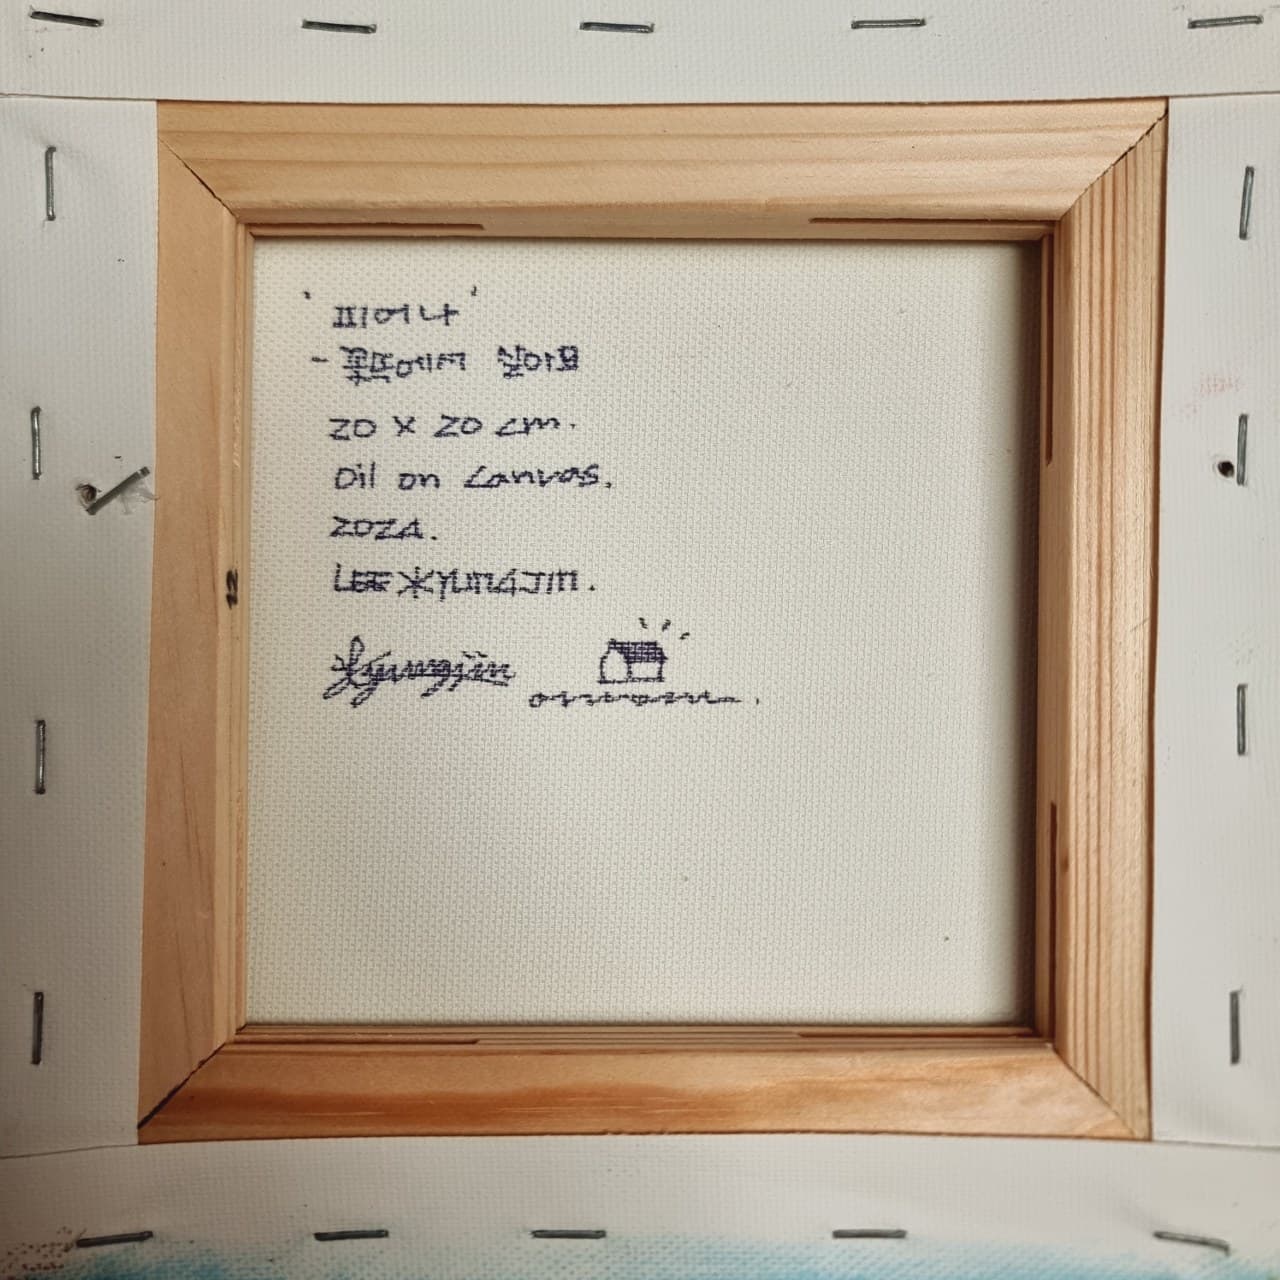 '피어나'
- 꽃밭에서 찾아요
20 X 20 cm.
Oil on Canvas.
2024.
LEE KYUNGJIN.
Kyungjin
12